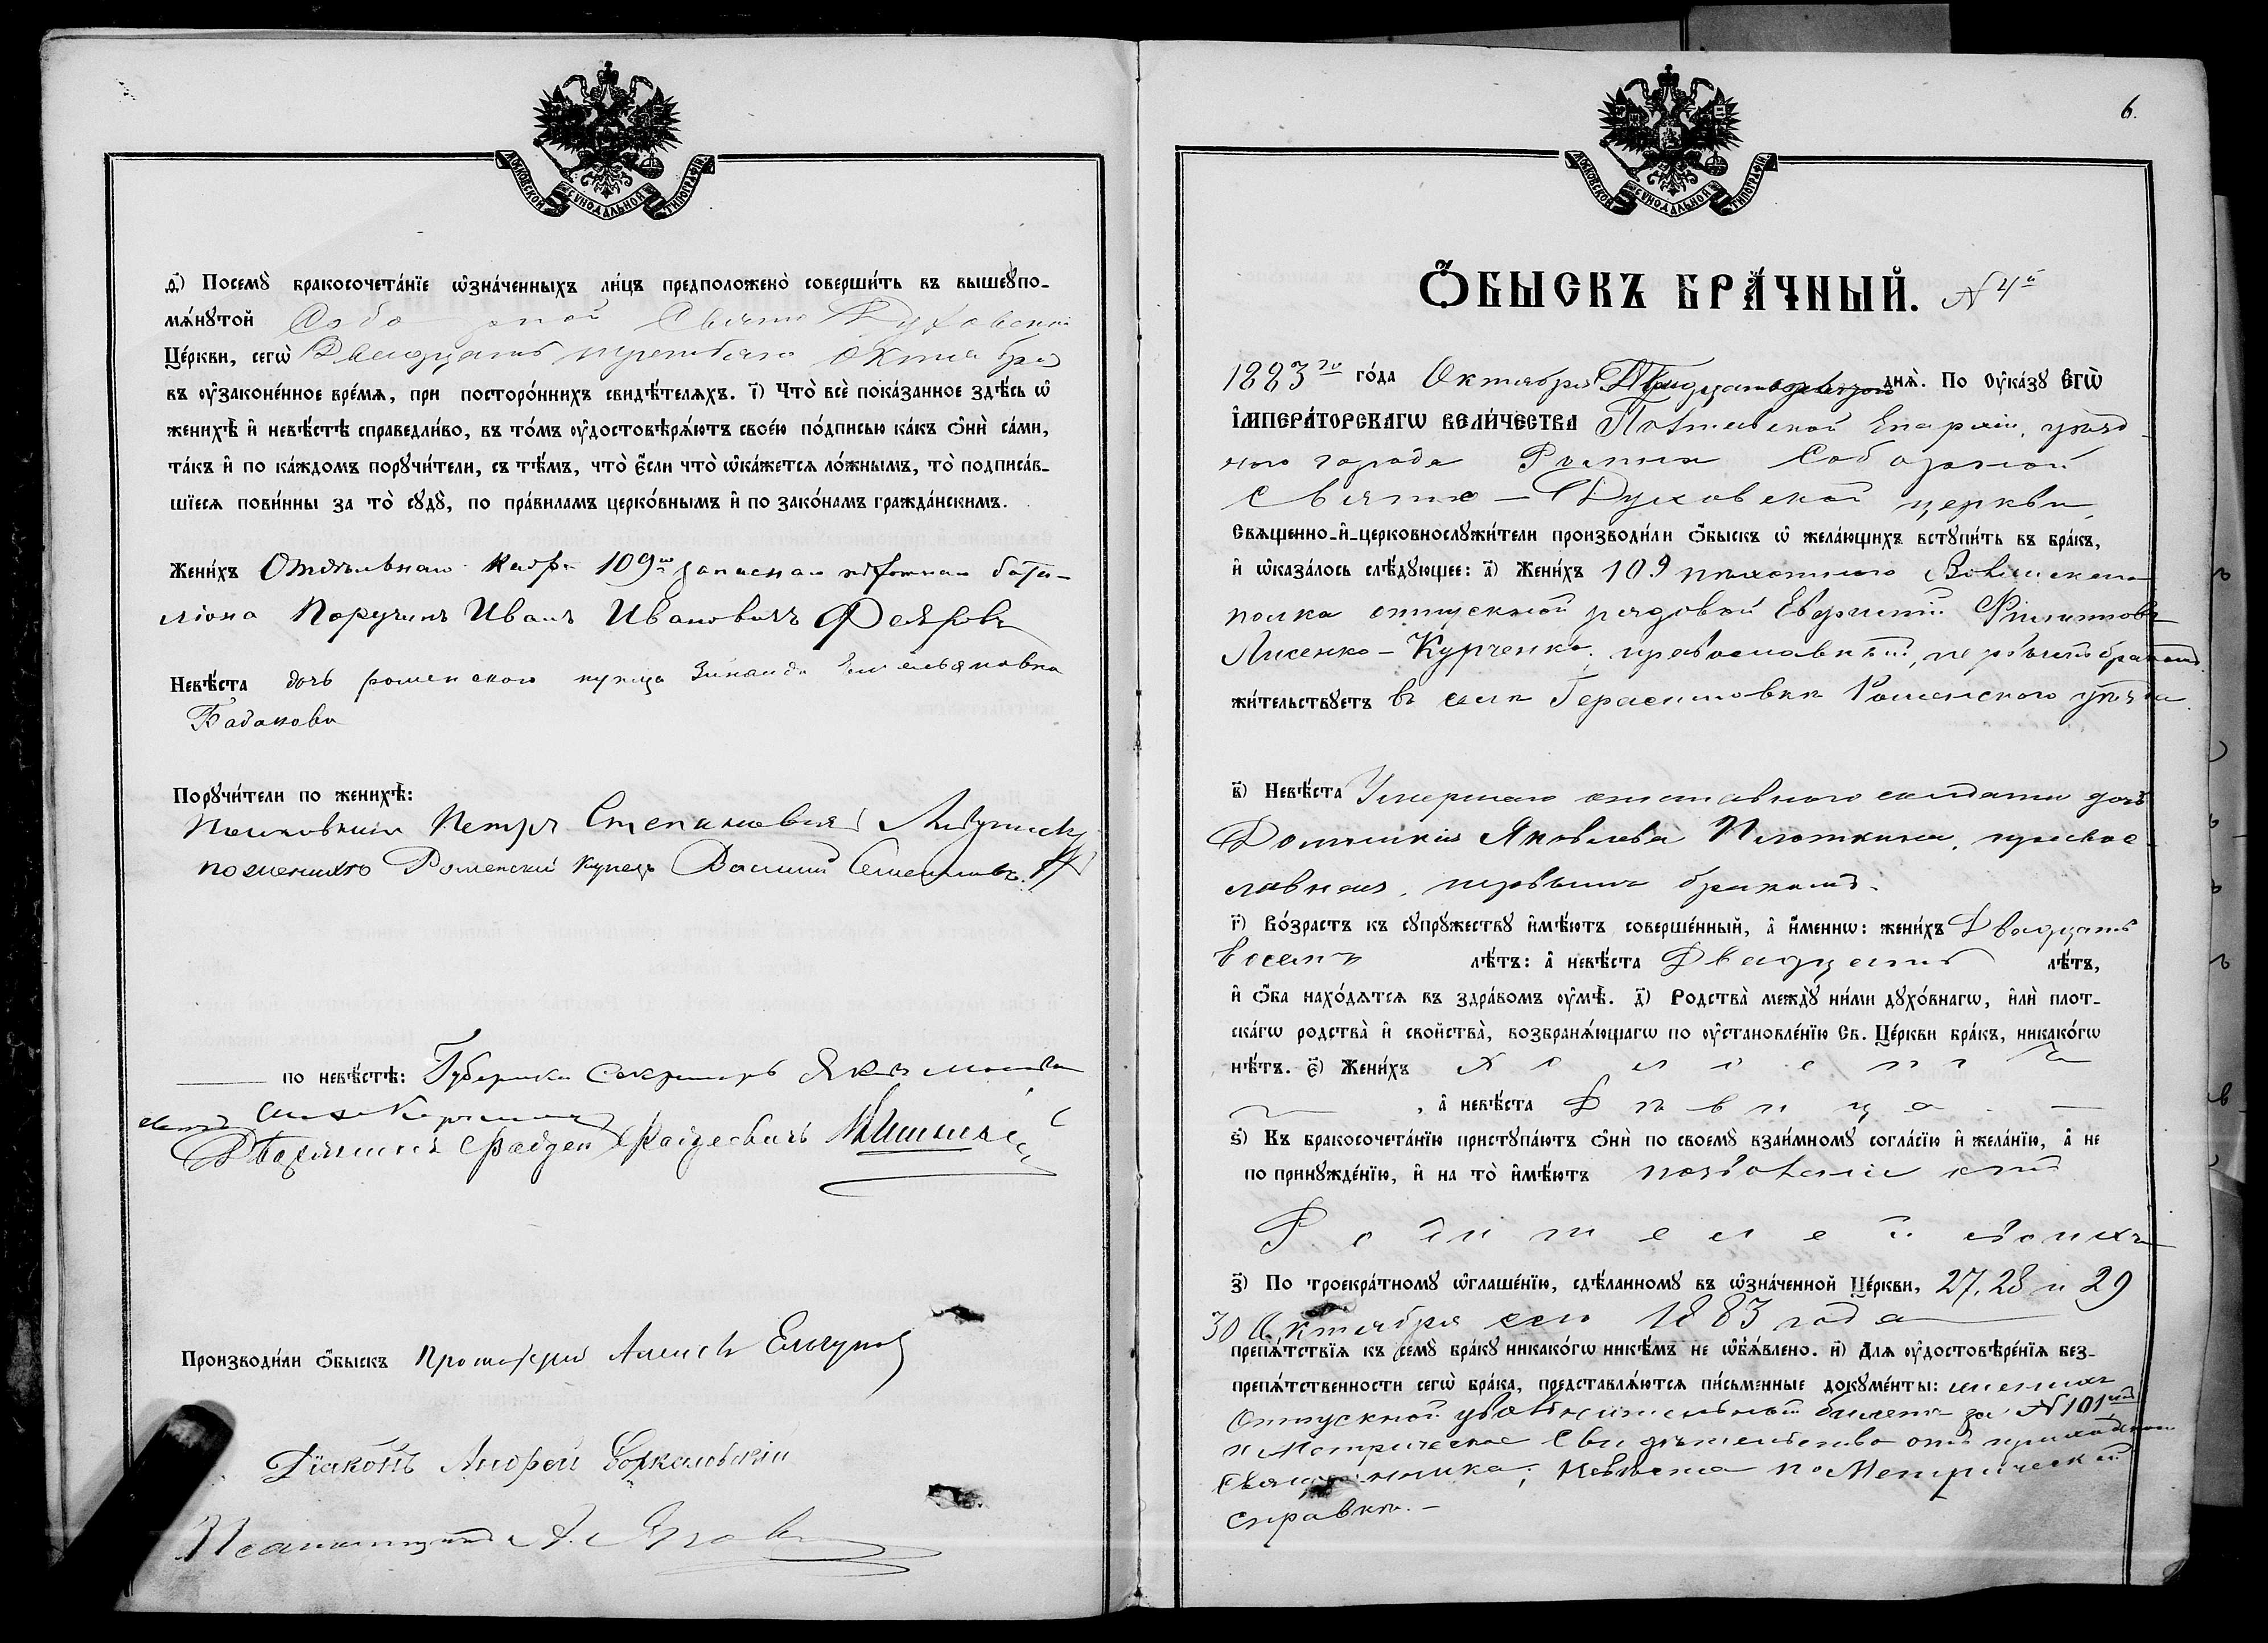 МОСКОВСКОЙ СѴНОДАЛЬНОЙ ТИПОГРАФІИ
ѳ҃) Посемꙋ̀ бракосочета́нїе ѡ҆зна́ченныхъ ли́цъ предположено̀ соверши́ть въ вышеꙋпо-
мѧ́нꙋтой Соборной Свято Духовской
Це́ркви, сегѡ̀ Двадцать третьяго октября
въ ᲂу҆законе́нное вре́мѧ, при посторо́ннихъ свидѣ́телѧхъ. і҃) Что̀ всѐ пока́занное здѣ́сь ѡ҆
женихѣ̀ и҆ невѣ́стѣ справедли́во, въ то́мъ ᲂу҆достовѣрѧ́ютъ свое́ю по́дписью ка́къ ѻ҆нѝ са́ми,
та́къ и҆ по ка́ждомъ порꙋчи́тели, съ тѣ́мъ, что̀ є҆́сли что̀ ѡ҆ка́жетсѧ ло́жнымъ, то̀ подписа́в-
шїесѧ пови́нны за то̀ сꙋдꙋ̀, по пра́виламъ церко́внымъ и҆ по зако́намъ гражда́нскимъ.
Жени́хъ Отдѣльнаго кадра 109го запаснаго пѣхотнаго бата-
ліона Поручикъ Иванъ Ивановичъ
Невѣ́ста дочь роменского купца Зинаида Емельяновна
Порꙋчи́тели по женихѣ̀:
Полковникъ Петръ Степановичъ
по женихѣ Роменскій купецъ Василій
по невѣ́стѣ: Губернскій Секретарь Яковъ
Дворянинъ
Производи́ли ѻ҆́быскъ Протоіерей Алексѣй
Діаконъ Андрей
Псаломщикъ А.
6.
МОСКОВСКОЙ СѴНОДАЛЬНОЙ ТИПОГРАФІИ
Ѻ҆́БЫСКЪ БРА́ЧНЫЙ. № 4й
1883го го́да Октября днѧ̀. По ᲂу҆ка́зꙋ Є҆гѡ̀
І҆МПЕРА́ТОРСКАГѠ ВЕЛИ́ЧЕСТВА Полтавской Епархіи, уѣзд-
ного города Ромна Соборной
Свято-Духовской церкви,
Свѧщенно-и҆-церковнослꙋжи́тели производи́ли ѻ҆́быскъ ѡ҆ жела́ющихъ встꙋпи́ть въ бра́къ,
и҆ ѡ҆каза́лось слѣ́дꙋющее: а҃) Жени́хъ 109 пѣхотнаго Волжскаго
полка отпускной рядовой Евфимій Филиповъ
Лисенко-Курченко, православный, первымъ бракомъ
жи́тельствꙋетъ въ селѣ Герасимовкѣ Роменского уѣзда.
в҃) Невѣ́ста Умершаго отставного солдата дочь
Яковлева Плоткина, правос-
лавная, первымъ бракомъ.
г҃) Во́зрастъ къ сꙋпрꙋ́жествꙋ и҆мѣ́ютъ соверше́нный, а҆ и҆́меннѡ: жени́хъ Двадцать
восемь лѣ́тъ: а҆ невѣ́ста Двадцать лѣ́тъ,
и҆ ѻ҆́ба нахо́дѧтсѧ въ здра́вомъ ᲂу҆мѣ̀. д҃) Родства̀ междꙋ̀ ни́ми дꙋхо́внагѡ, и҆лѝ плот-
ска́гѡ родства̀ и҆ свойства̀, возбранѧ́ющагѡ по ᲂу҆становле́нїю Св. Це́ркви бра́къ, никако́гѡ
нѣ́тъ. є҃) Жени́хъ Холостъ
, а҆ невѣ́ста Дѣвица
ѕ҃) Къ бракосочета́нїю пристꙋпа́ютъ ѻ҆нѝ по своемꙋ̀ взаи́мномꙋ согла́сїю и҆ жела́нїю, а҆ не
по принꙋжде́нїю, и҆ на то̀ и҆мѣ́ютъ позволеніе отъ
Родителей своихъ
з҃) По троекра́тномꙋ ѡ҆глаше́нїю, сдѣ́ланномꙋ въ ѡ҆зна́ченной Це́ркви, 27, 28 и 29
30 Октября сего 1883 года
препѧ́тствїѧ къ семꙋ̀ бра́кꙋ никако́гѡ никѣ́мъ не ѡ҆б̾ѧ́влено. и҃) Длѧ ᲂу҆достовѣре́нїѧ без-
препѧ́тственности сегѡ̀ бра́ка, представлѧ́ютсѧ пи́сьменные докꙋме́нты: женихъ
Отпускной увольнительный билетъ за № 101
и Метрическое Свидѣтельство отъ приходского
священника; Невѣста по Метрической
справкѣ. –